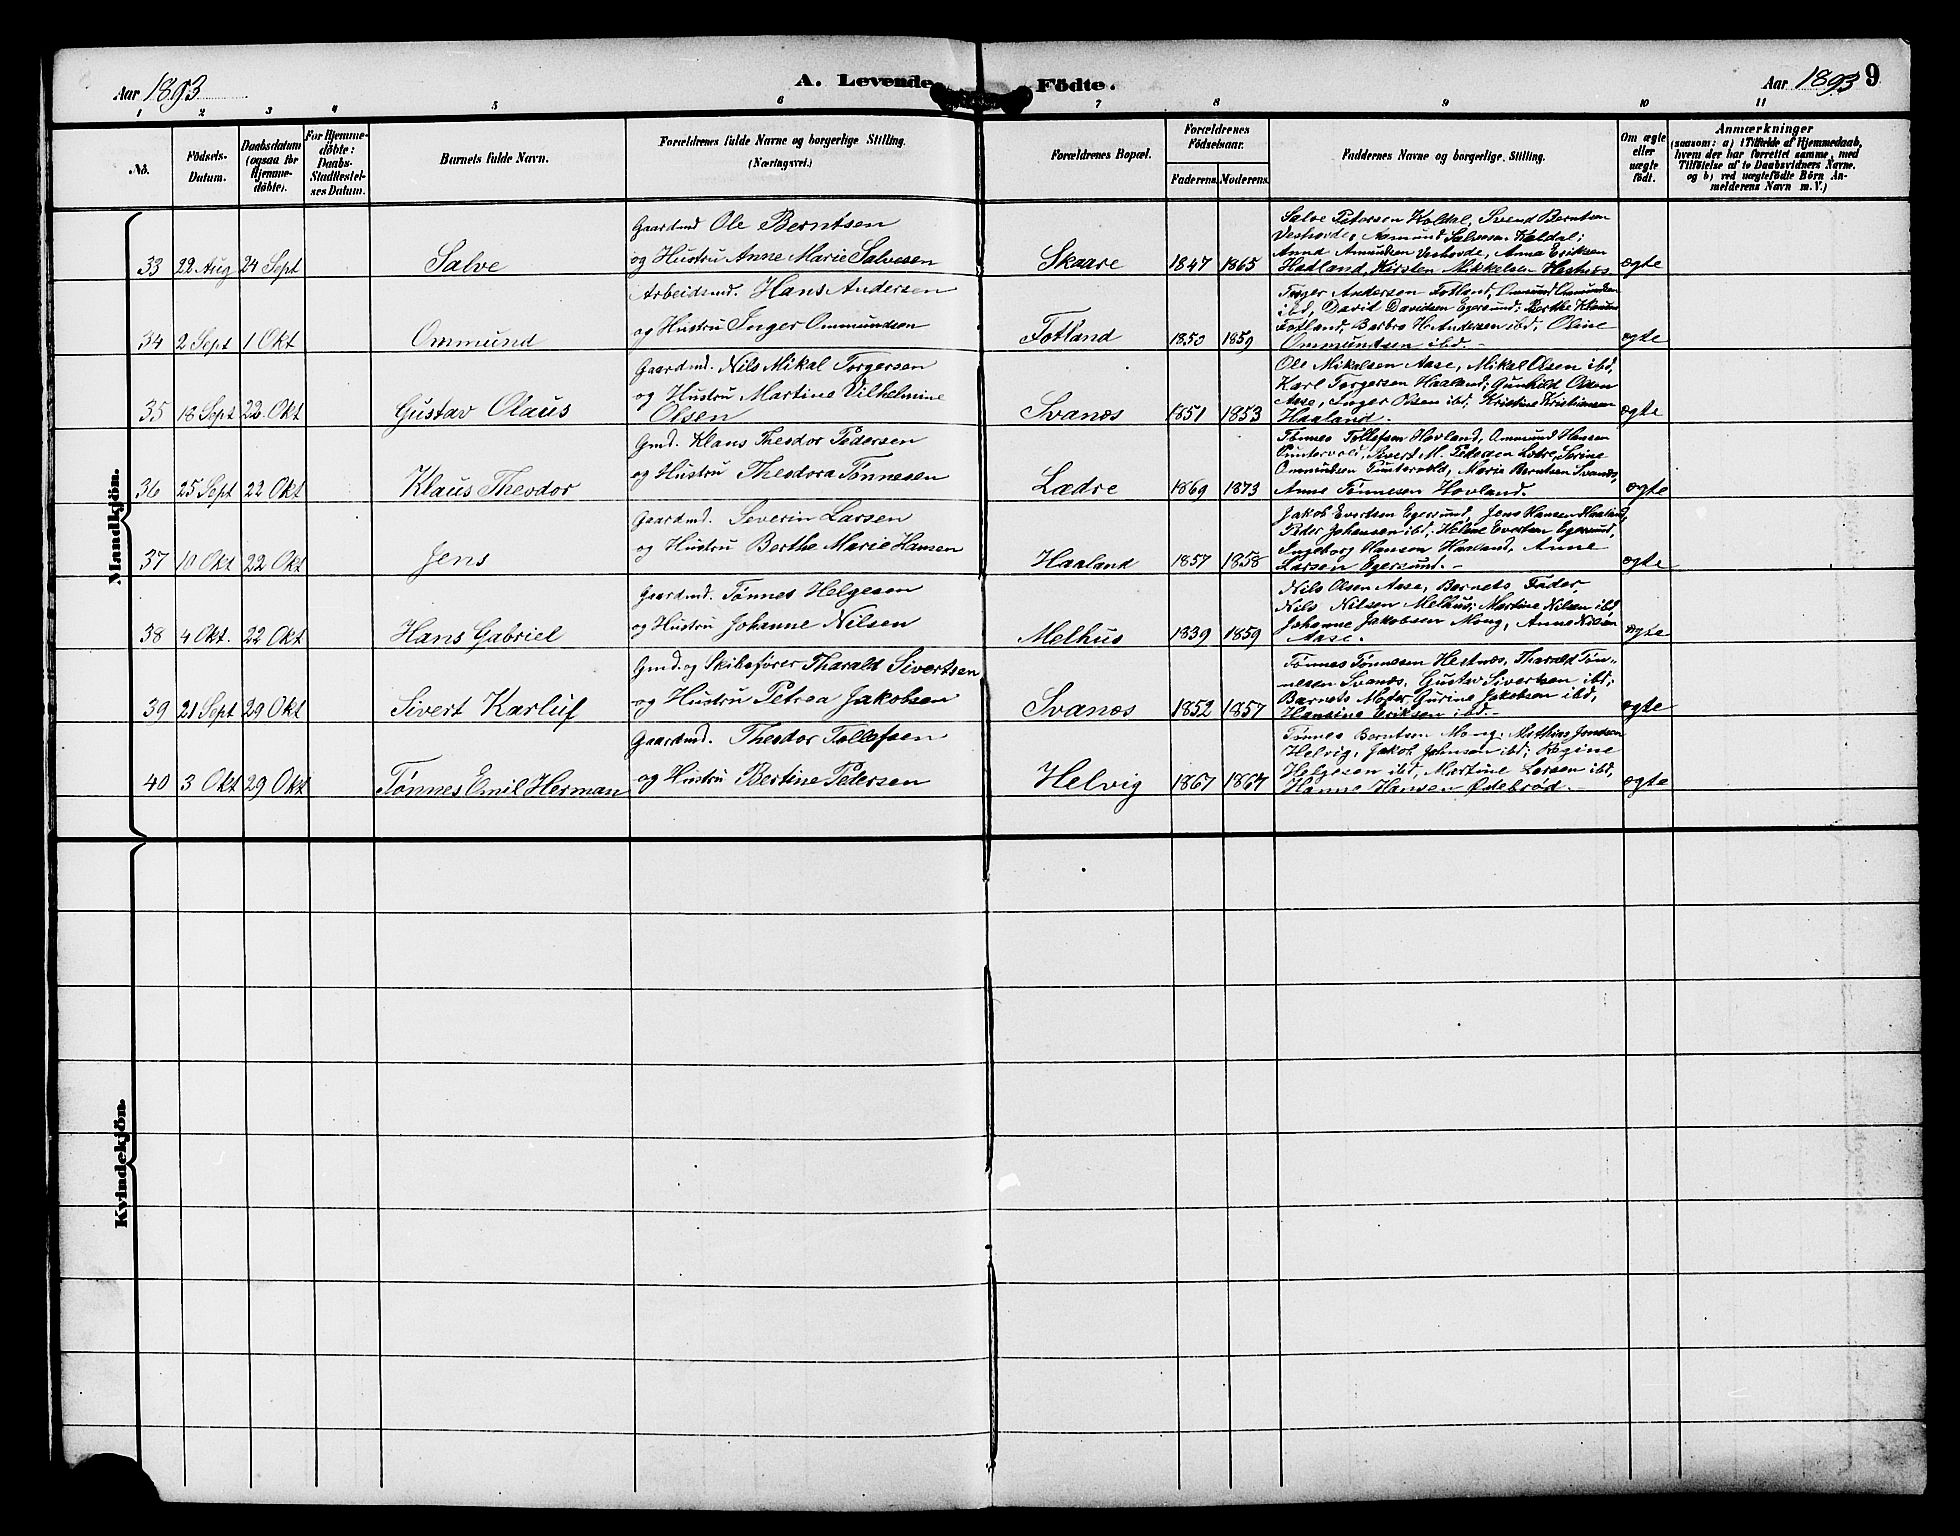 Aar 1893 A. Levende Födte. Aar 1893 9
1 2 3 4 5 6 7 8 9 10 11
No.
Födsels-
Datum.
Daabsdatum
(ogsaa for
Hjemme-
döbte).
For Hjemme-
döbte:
Daabs-
Stadfæstel-
ses Datum.
Barnets fulde Navn.
Forældrenes fulde Navne og borgerlige Stilling.
(Næringsvei.)
Forældrenes Bopæl.
Forældrenes
Födselsaar.
Faderens. Moderens.
Faddernes Navne og borgerlige Stilling.
Om ægte
eller
uægte
födt.
Anmærkninger
(saasom: a) i Tilfælde af Hjemmedaab,
hvem der har forrettet samme, med
Tilföielse af to Daabsvidners Navne.
og b) ved uægtefödte Börn An-
melderens Navn m. V.)
Mandkjön.
33 22 Aug 24 Sept Salve
Gaardmd Ole Berntsen
og Hustru Anne Marie Salvesen
Skaare 1847 1865
Salve Petersen Koldal, Svend Berntsen
Veshovde, Aamund Salvesen Koldal;
Anna Amundsen Veshovde, Anna Eriksen
Hadland, Kirsten Mikkelsen Hestnæs.
ægte
34 2 Sept 1 Okt Ommund
Arbeidsmd. Hans Andersen
og Hustru Inger Ommundsen
Fotland 1850 1859
Torger Andersen Fotland, Ommund Ommundsen
ibd, David Davidsen Egersund; Berthe Klausen
Fotland, Barbro H. Andersen ibd, Oline
Ommundsen ibd.-
ægte
35 18 Sept 22 Okt Gustav Olaus
Gaardmd. Nils Mikal Torgersen
og Hustru Martine Vilhelmine
Olsen
Svanæs 1851 1853
Ole Mikalsen Aase, Mikal Olsen ibd,
Karl Torgersen Haaland; Gunhild Olsen
Aase, Inger Olsen ibd, Kristine Kristiansen
Haaland.-
ægte
36 25 Sept 22 Okt Klaus Theodor
Gmd. Klaus Theodor Pedersen
og Hustru Theodora Tønnesen
Lædre 1869 1873
Tønnes Tollefsen Hovland, Ommund Hansen
Puntervold, Sivert M. Petersen Lædre, Serine
Ommundsen Puntervold, Marie Berntsen Svanæs,
Anne Tønnesen Hovland.
ægte
37 10 Okt 22 Okt Jens
Gaardmd. Severin Larsen
og Hustru Berthe Marie Hansen
Haaland 1857 1858
Jakob Evertsen Egersund, Jens Hansen Haaland,
Peder Johansen ibd, Helene Evertsen Egersund,
Ingeborg Hansen Haaland, Anne
Larsen Egersund.-
ægte
38 4 Okt. 22 Okt Hans Gabriel
Gaardmd. Tønnes Helgesen
og Hustru Johanne Nilsen
Melhus 1839 1859
Nils Olsen Aase, Barnets Fader,
Nils Nilsen Melhus; Martine Nilsen ibd,
Johanne Jakobsen Mong, Anne Nilsen
Aase.
ægte
39 21 Sept 29 Okt Sivert Karluf
Gmd. og Skibsfører Tharald Sivertsen
og Hustru Petrea Jakobsen
Svanæs 1852 1857
Tønnes Tønnesen Hestnæs, Tharald Tøn-
nesen Svanæs, Gustav Sivertsen ibd;
Barnets Moder, Gurine Jakobsen ibd,
Hansine Eriksen ibd.-
ægte
40 3 Okt 29 Okt Tønnes Emil Herman
Gaardmd. Theodor Tollefsen
og Hustru Bertine Pedersen
Helvig 1867 1867
Tønnes Berntsen Mong, Mathias Jonassen
Helvig, Jakob Johnsen ibd; Regine
Helgesen ibd, Martine Larsen ibd,
Hanne Hansen Ødebrød.-
ægte
Kvindekjön.